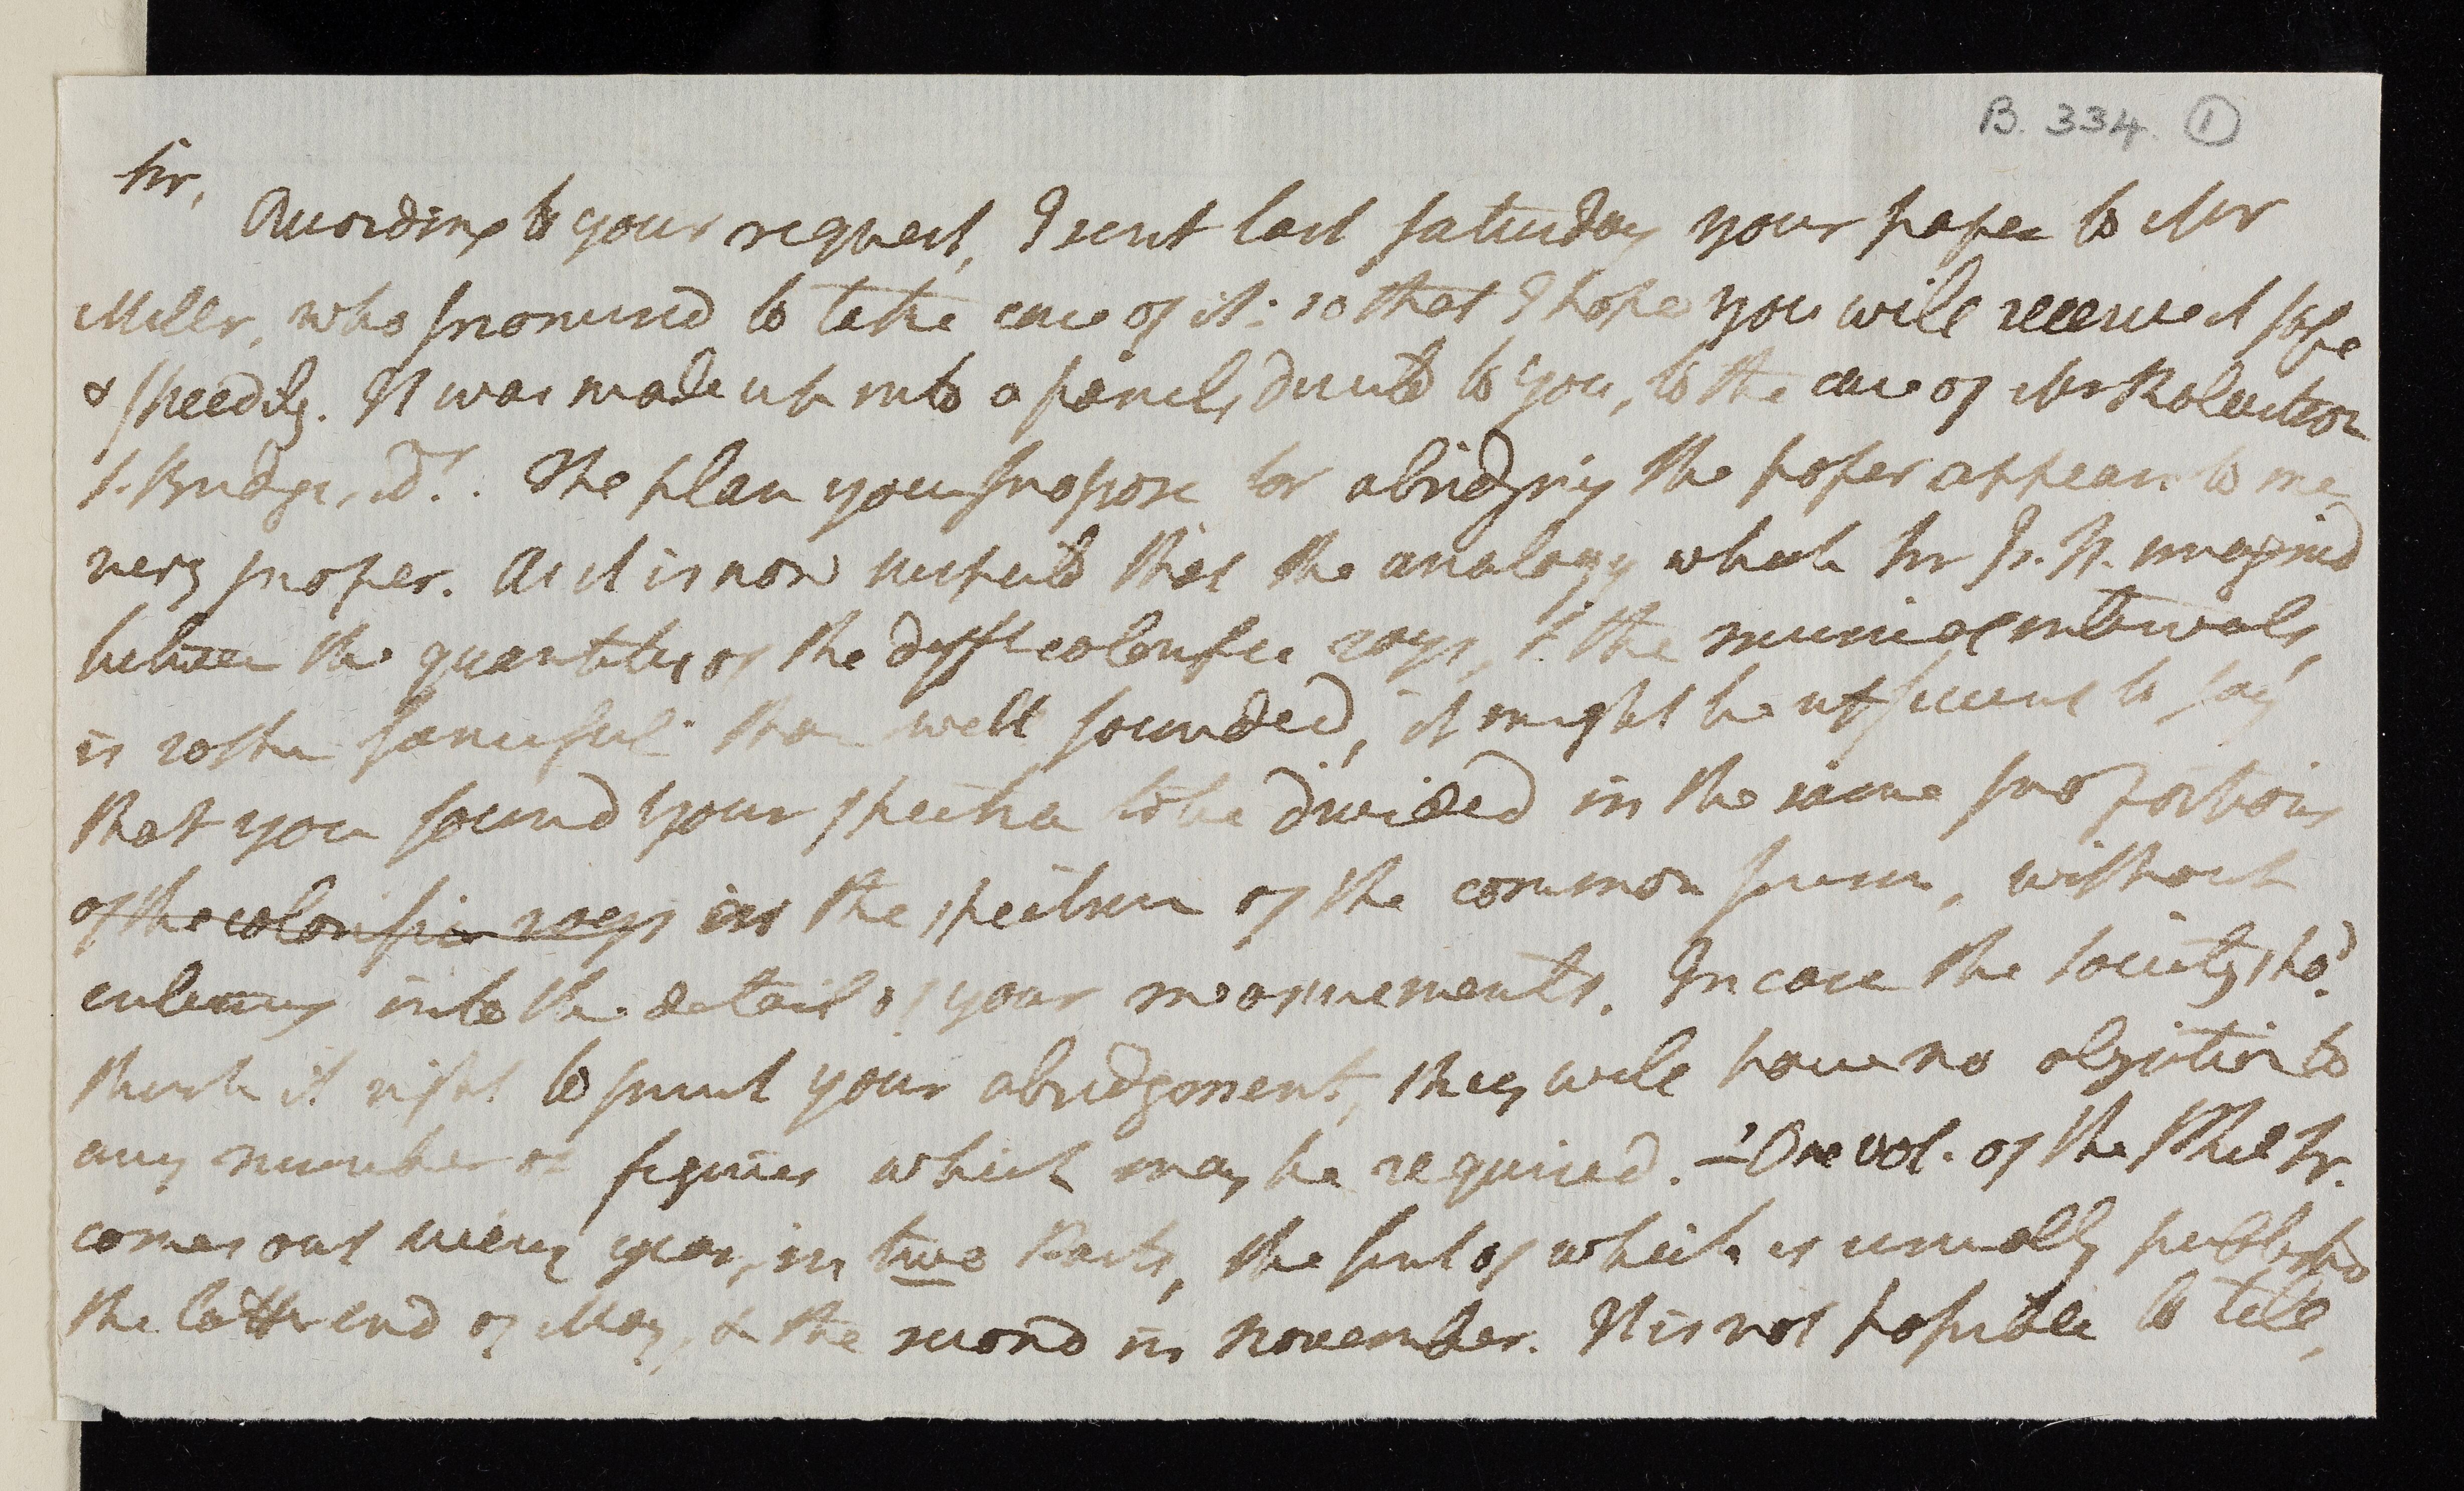 B. 334. 1
Sir,
According to your request, I sent last Saturday your paper to Mr
Miller, who promised to take care of it: so that I hope you will receive it safe
& speedily. It was made up into a parcel, directed to you, to the care of Mr
Bridge, The plan you propose for abridging the paper appears to me
very proper. As it is now suspected that the analogy which Sr Is. N. imagined
between the quantities of the difft colorific rays, & the musical intervals,
is rather fanciful than well founded, it might be sufficient to say
that you found your spectra to be divided in the same proportions
of the colorific rays in the spectrum of the common prism, without
entering into the detail of your measurements. In case the Society shod.
think it right to print your abridgment, they will have no objection to
any number of figures which may be required. — One vol. of the Phil Tr.
comes out every year, in two Parts, the first of which is usually published
the latter end of May, & the second in November. It is not possible to tell,